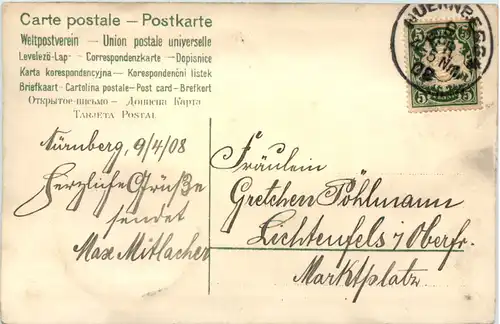 Carte postale – Postkarte
Weltpostverein – Union postale universelle
Levelező-Lap – Correspondenzkarte – Dopisnice
Karta korespondencyjna – Korespondenční lístek
Briefkaart – Cartolina postale – Post card – Brefkort
Открытое письмо – Дописна Карта
Tarjeta Postal
Nürnberg, 9/4/08
Herzliche Grüße
sendet
Max Mitlacher
NUERNBERG
5
5
Fräulein
Gretchen Pöhlmann
Lichtenfels i/ Oberfr.
Marktplatz